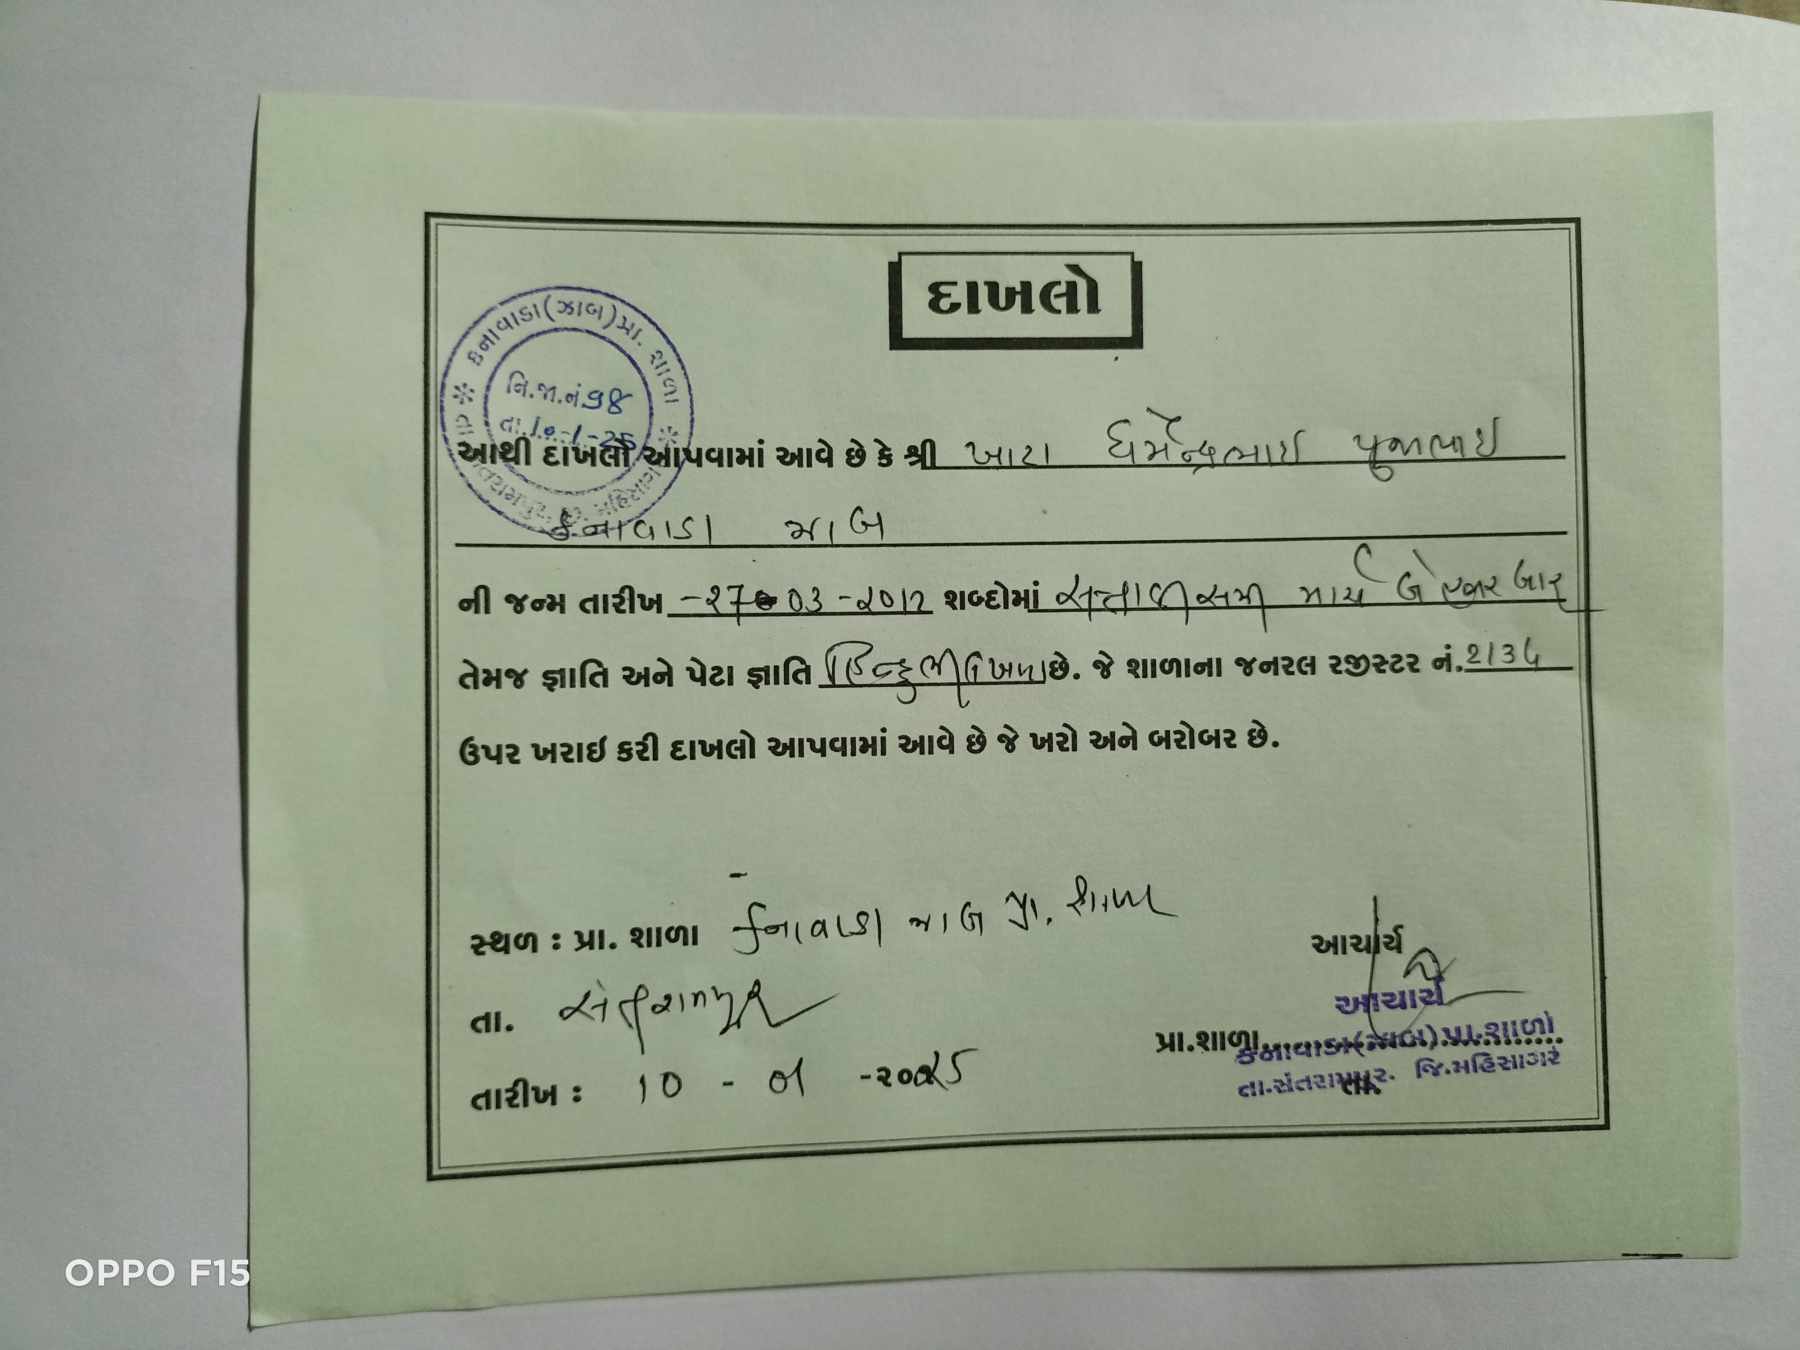 દાખલો
કનાવાડા(ઝાબ)પ્રા. શાળા
નિ.જા.નં 98
તા.10-1-25
આથી દાખલો આપવામાં આવે છે કે શ્રી ખાટા ધર્મેન્દ્રભાઈ પુજાભાઈ
કનાવાડા ઝાબ
ની જન્મ તારીખ -27-03-2012 શબ્દોમાં સત્તાવીસમી માર્ચ બે હજાર બાર
તેમજ જ્ઞાતિ અને પેટા જ્ઞાતિ હિન્દુ ભીલ છે. જે શાળાના જનરલ રજીસ્ટર નં.
ઉપર ખરાઇ કરી દાખલો આપવામાં આવે છે જે ખરો અને બરોબર છે.
સ્થળ : પ્રા. શાળા કનાવાડા ઝાબ પ્રા. શાળા
આચાર્ય
તા. સંતરામપુર
આચાર્ય
પ્રા.શાળા
કનાવાડા(ઝાબ).પ્રા.શાળા
તા.સંતરામપુર. જિ.મહિસાગર
તા.
તારીખ : 10 - 01 -૨૦૨૫
OPPO F15